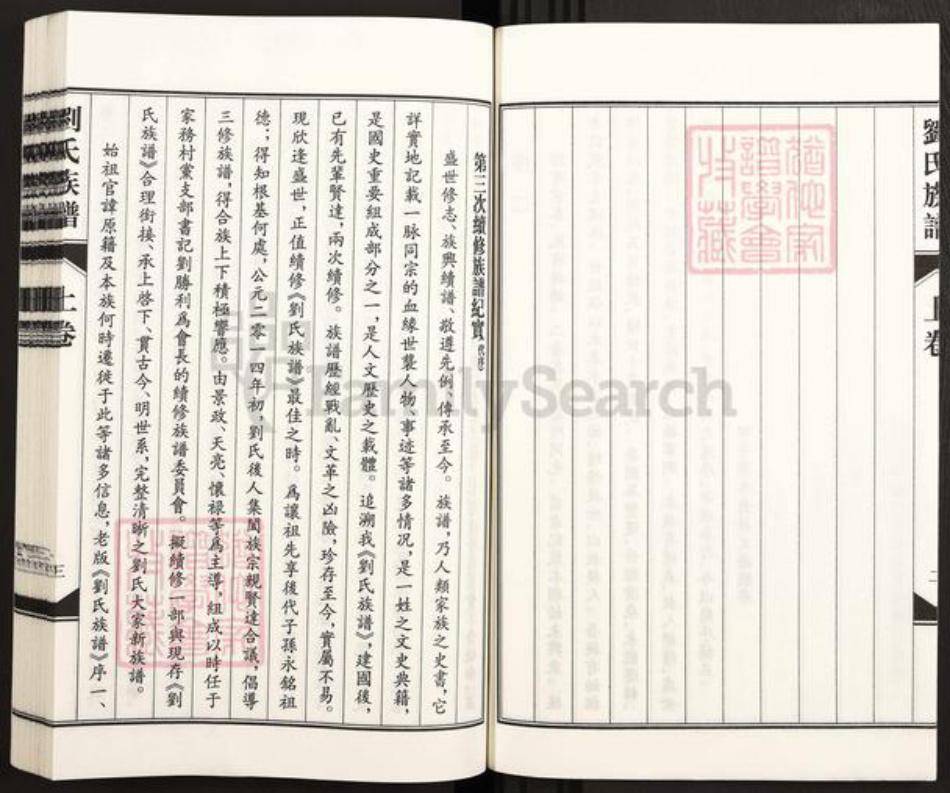 劉氏族譜
上卷
二
第三次續修族譜紀實 代序
盛世修志、族興續譜、敬遵先例、傳承至今。族譜,乃人類家族之史書,它
詳實地記載一脉同宗的血緣世襲人物、事迹等諸多情况,是一姓之文史典籍,
是國史重要組成部分之一,是人文歷史之載體。追溯我《劉氏族譜》,建國後,
已有先輩賢達,兩次續修。族譜歷經戰亂、文革之凶險,珍存至今,實屬不易。
現欣逢盛世,正值續修《劉氏族譜》最佳之時。爲讓祖先享後代子孫永銘祖
德;得知根基何處,公元二零一四年初,劉氏後人集闔族宗親賢達合議,倡導
三修族譜,得合族上下積極響應。由景政、天亮、懷禄等爲主導,組成以時任于
家務村黨支部書記劉勝利爲會長的續修族譜委員會。擬續修一部與現存《劉
氏族譜》合理銜接、承上啓下、貫古今、明世系,完整清晰之劉氏大家新族譜。
始祖官諱原籍及本族何時遷徙于此等諸多信息,老版《劉氏族譜》序一、
劉氏族譜
上卷
三
FamilySearch